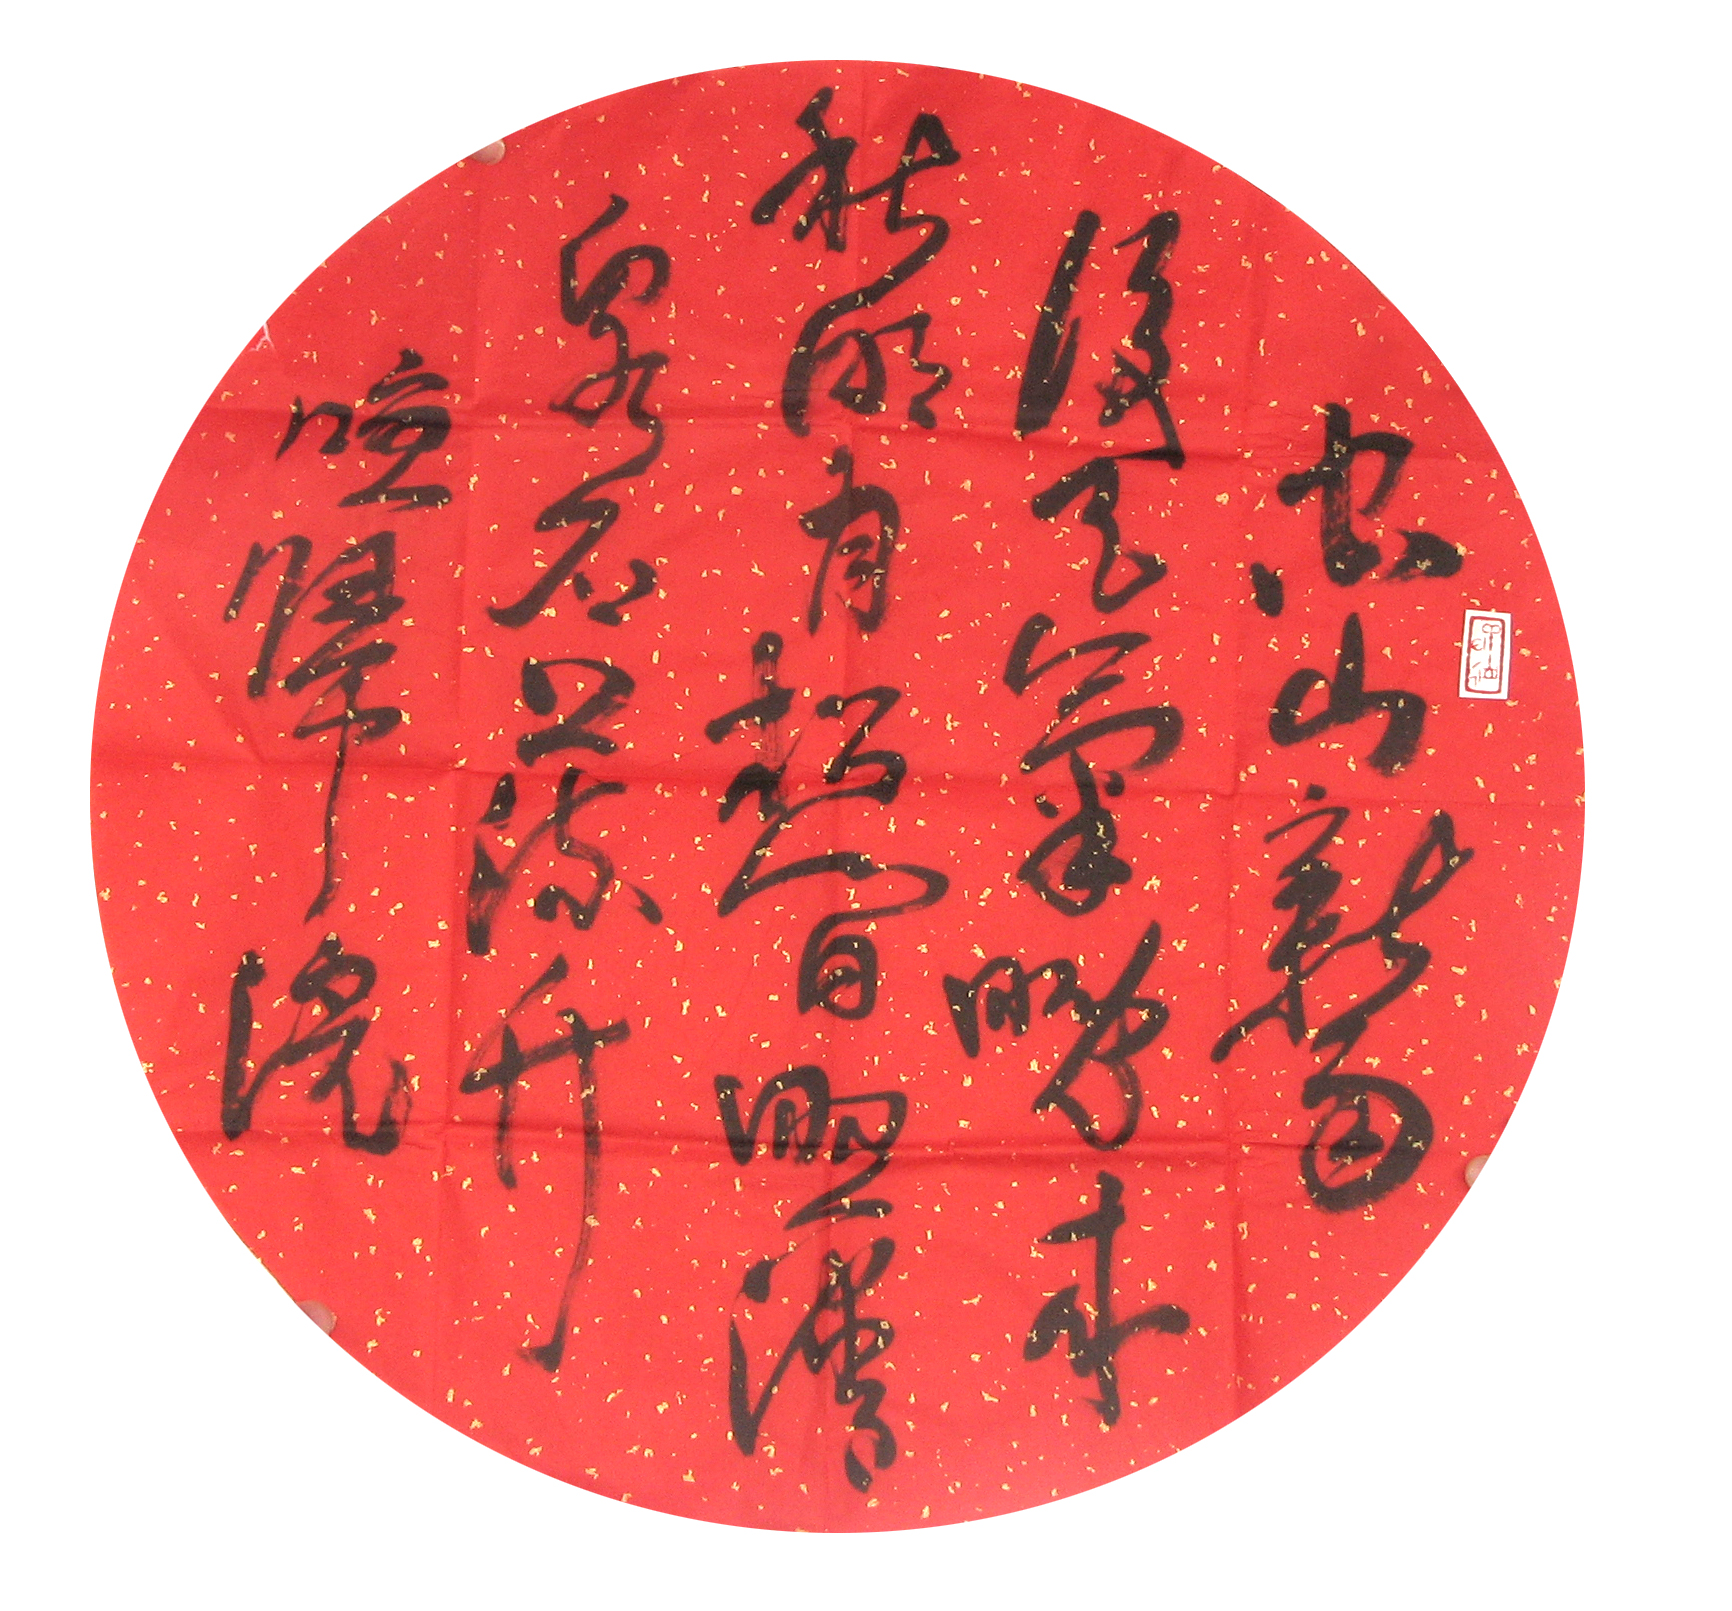 空山新雨
後天氣晚来
秋明月松間照清
泉石上流竹
喧歸浣